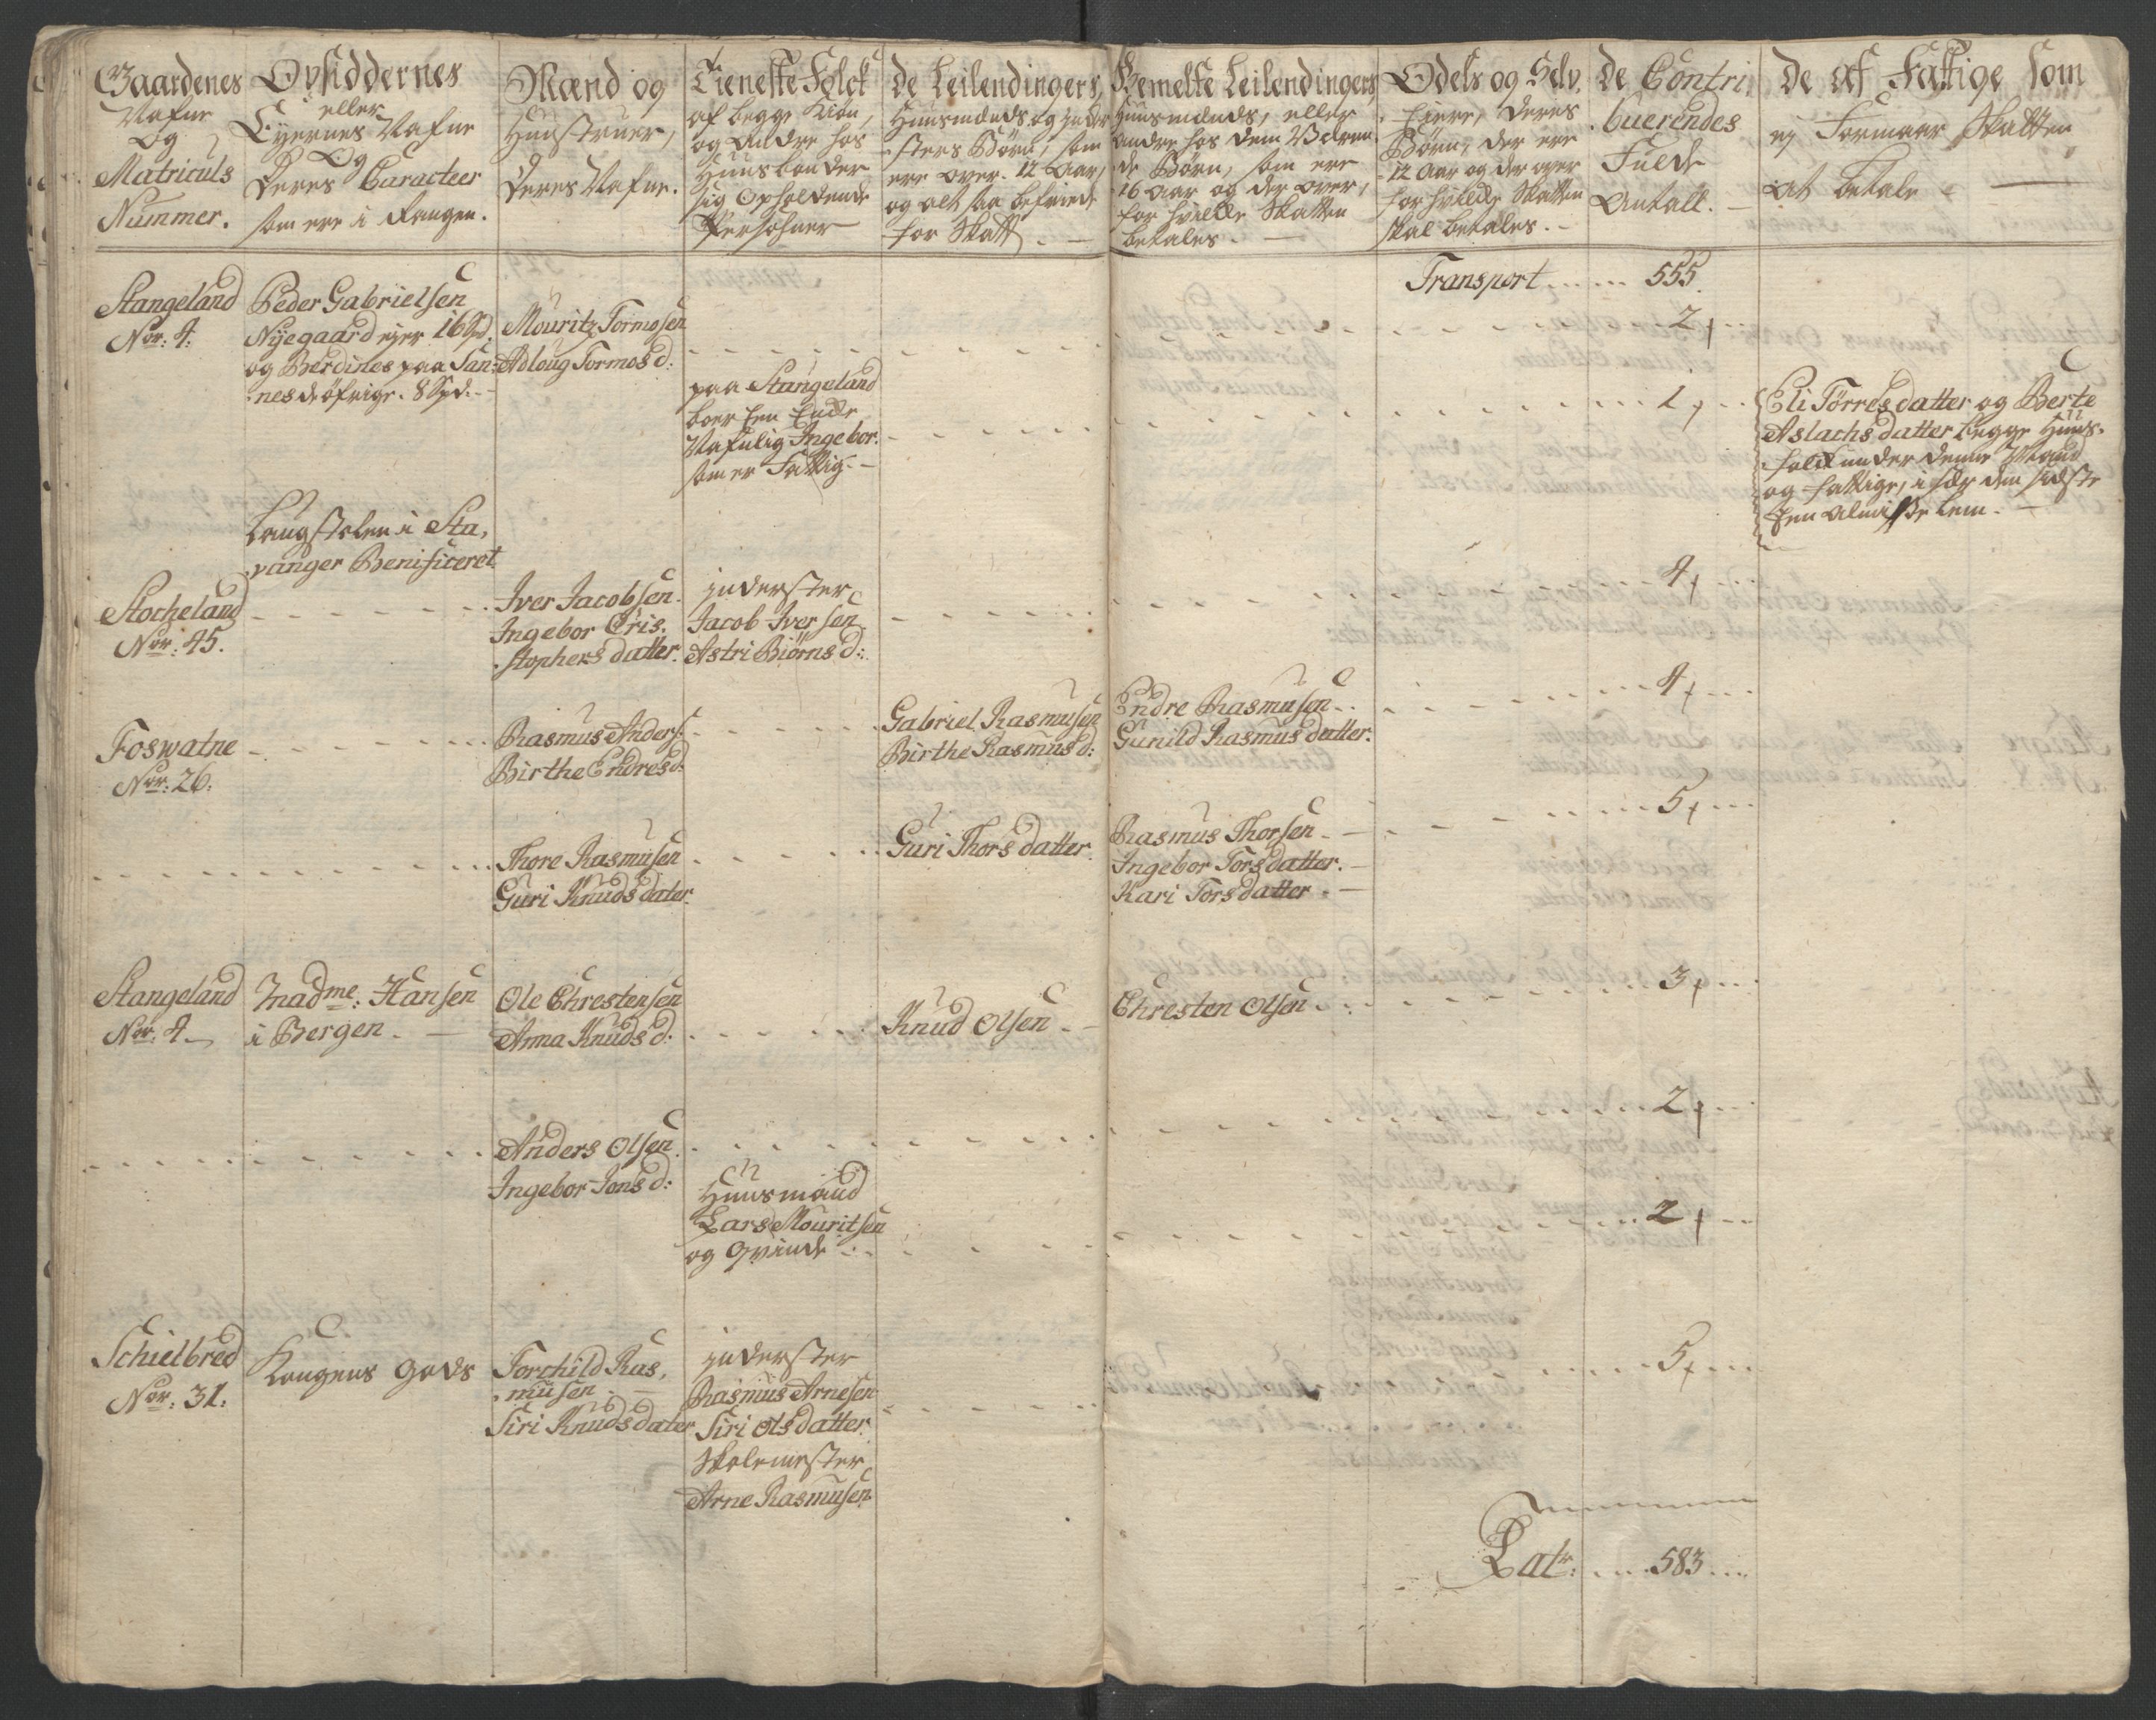 Gaardenes
Nafne
Og
Matriculs
Nummer.
Opsiddernes
eller
Eyernes Nafne
Og
Deres Caracteer
som ere i Rangen.
Mænd og
Hustruer,
Deres Nafne.
Tieneste Folck
af begge Kiøn,
og Andre hos
Huusbonder
sig Opholdende
Persohner
De Leilendingers,
Huusmænds, og Inder-
sters Børn, som
ere over 12 Aar,
og alt saa befriede
for Skatt.
Bemelte Leilendingers
Huusmænds, eller
andre hos dem Væren-
de Børn, som ere
16 Aar og der over,
for hvilcke Skatten
betales.
Odels og Selv,
Eyere, Deres
Børn, der ere
12 Aar og der over
for hvilcke Skatten
skal betales.
De Contri
buerendes
Fulde
Antall.
De af Fattige som
ej Formaar Skatten
at betale
Transport 555.
Stangeland
Nor: 4.
Peder Gabrielsen
Nyegaard ejer 16 Spd.
og Berdines paa San-
nes de øfrige 8 Spd.
Mouritz Tormosen
Adloug Tormosd:
2,
paa Stangeland
boer Een Encke
Nafnlig Ingebor
som er Fattig.
1,
Eli Törresdatter og Berte
Aslachsdatter begge Huus-
folck under denne Mand
og fattige, i sær den sidste
Een Almisse Lem.
Laugstolen i Sta,
vanger Benificeret
Stocheland
Nor: 45.
Iver Jacobsen.
Ingebor Cris,
stophersdatter.
Inderster
Jacob Iversen
Astri Biörnsd:
4,
Foswatne
Nor: 26.
Rasmus Anders:
Birthe Endresd:
Gabriel Rasmusen
Birthe Rasmusd:
Endre Rasmusen
Gunild Rasmusdatter.
4,
Thore Rasmusen
Guri Knudsdater.
Guri Thorsdatter.
Rasmus Thorsen
Ingebor Torsdatter.
Kari Torsdatter
5,
Stangeland
Nor: 4
Madme: Hansen
i Bergen
Ole Chrestensen
Anna Knudsd:
Knud Olsen
Chresten Olsen
3,
Anders Olsen.
Ingebor Jonsd:
2,
Huusmand
Lars Mouritsen
og Qvinde
2,
Schielbred
Nor: 31.
Kongens Gods
Torchild Ras,
musen
Siri Knudsdater
Inderster
Rasmus Arnesen
Siri Olsdatter.
Skolemester
Arne Rasmusen
5,
Latr: 583